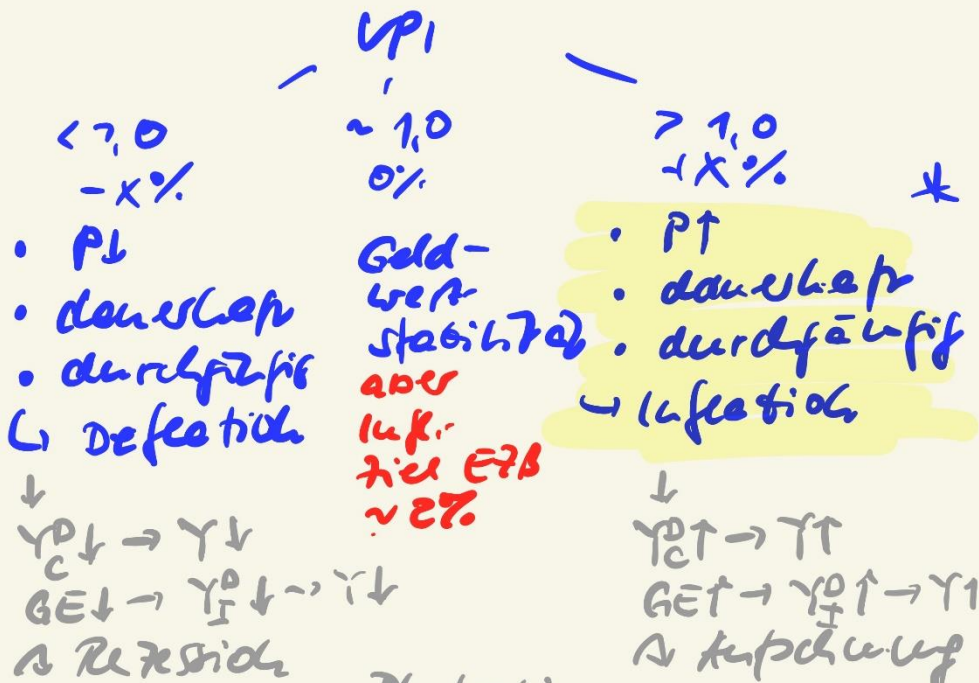 VPI
< 1,0
- X%
• P↓
• dauerhaft
• durchgängig
↳ Deflation
↓
Y^D_C ↓ → Y ↓
GE ↓ → Y^D_I ↓ → Y ↓
≙ Rezession
~ 1,0
0%
Geld-
wert-
stabilität
aber
Infl.-
ziel EZB
~ 2%
> 1,0
+X%
*
• P↑
• dauerhaft
• durchgängig
↳ Inflation
↓
Y^D_C ↑ → Y↑
GE↑ → Y^D_I ↑ → Y↑
≙ Aufschwung